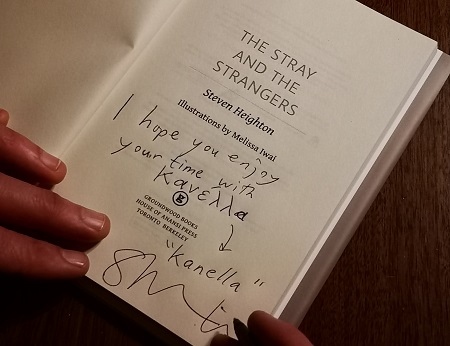 THE STRAY
AND THE
STRANGERS
Steven Heighton
Illustrations by Melissa Iwai
I hope you enjoy
your time with
Κανέλλα
g
GROUNDWOOD BOOKS
HOUSE OF ANANSI PRESS
TORONTO BERKELEY
"Kanella"